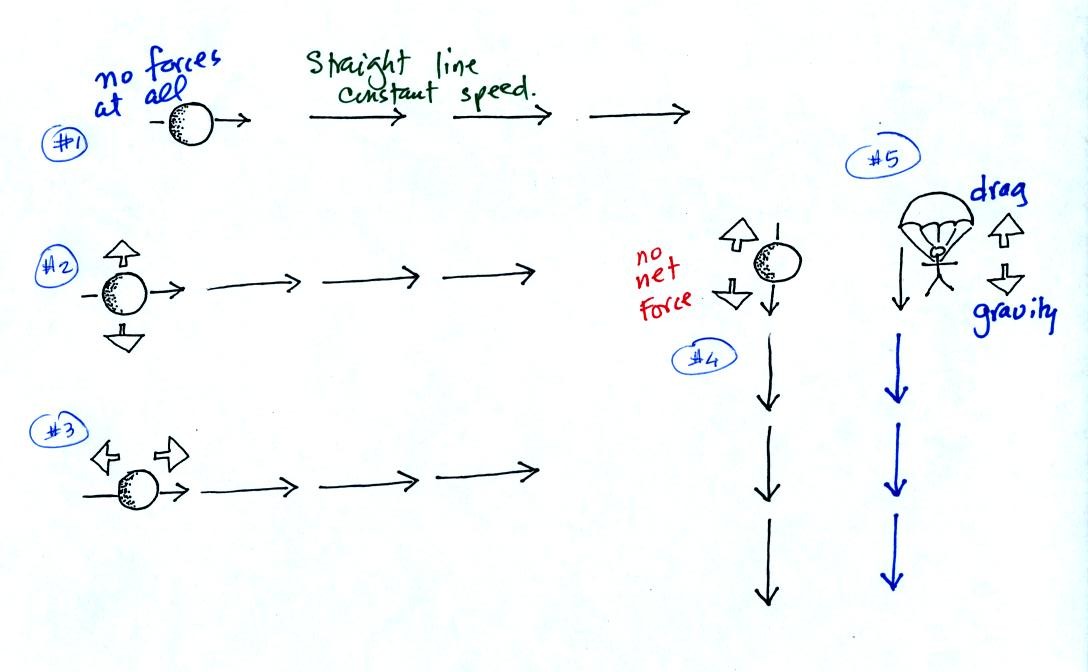 no forces
at all
Straight line
constant speed.
#1
#2
#3
no
net
Force
#4
#5
drag
gravity